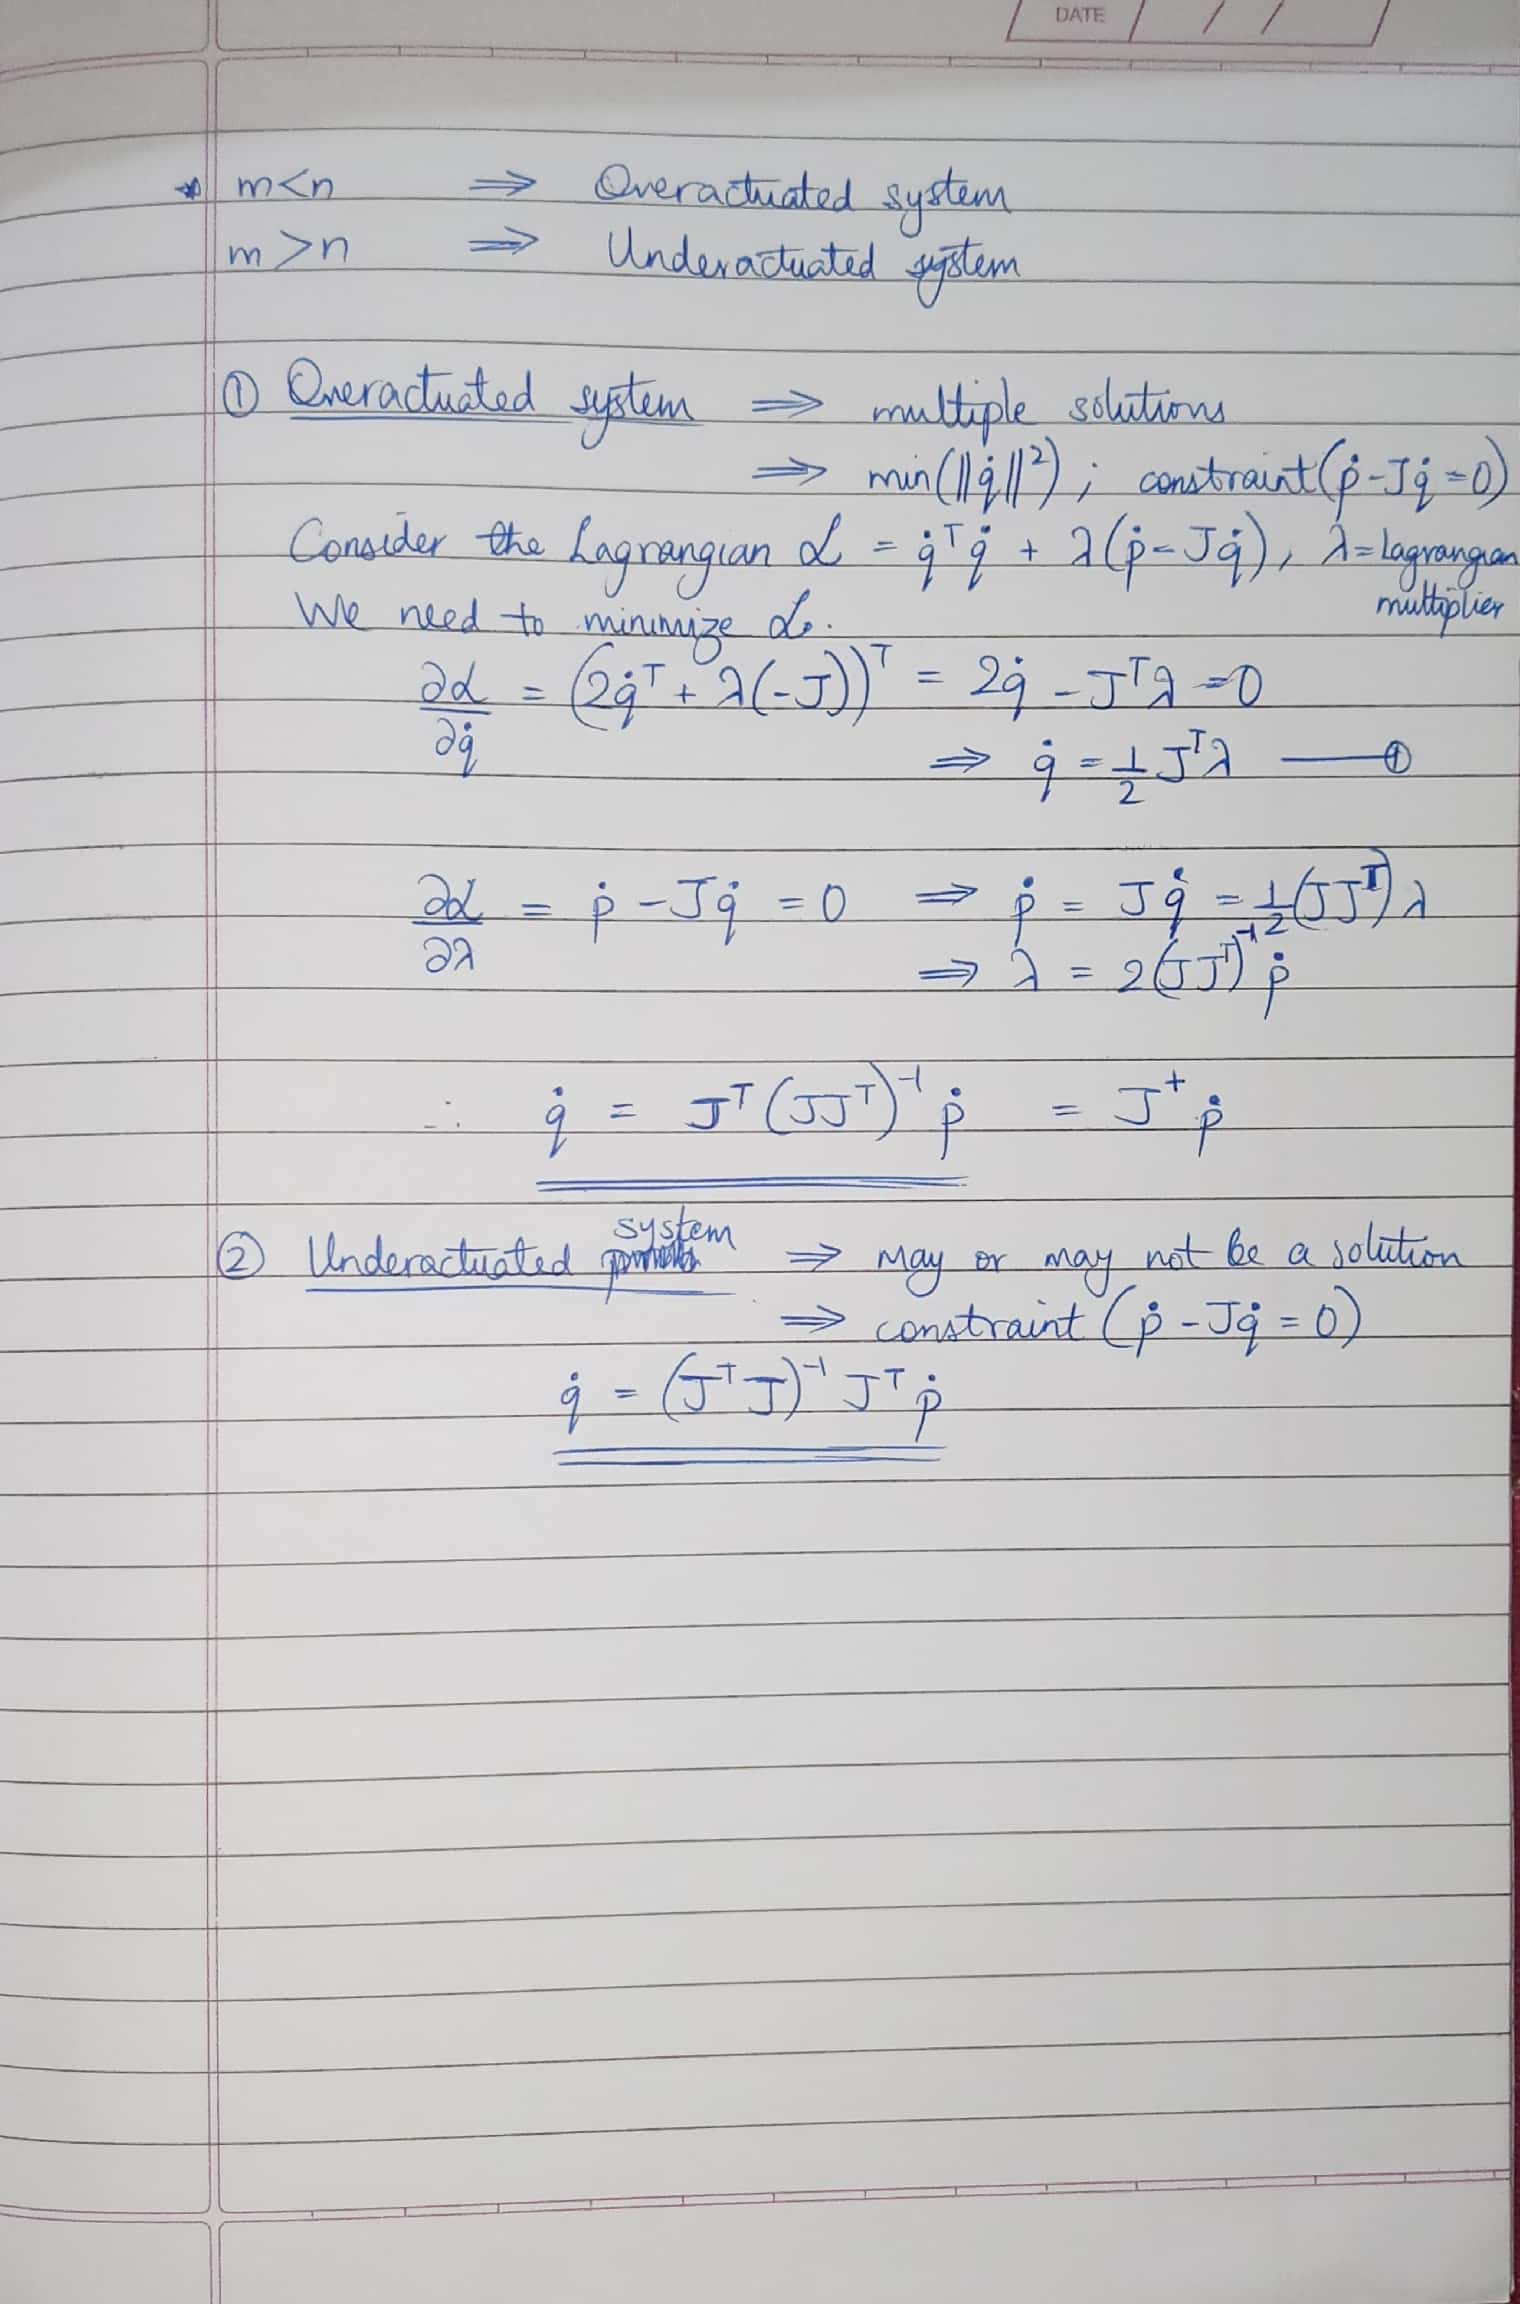 DATE / / /
* m<n ⇒ Overactuated system
m>n ⇒ Underactuated system
① Overactuated system ⇒ multiple solutions
⇒ min(||q̇||²) ; constraint(ṗ-Jq̇=0)
Consider the Lagrangian L = q̇ᵀq̇ + λ(ṗ-Jq̇), λ=Lagrangian multiplier
We need to minimize L.
∂L/∂q̇ = (2q̇ᵀ + λ(-J))ᵀ = 2q̇ - Jᵀλ = 0
⇒ q̇ = 1/2 Jᵀλ —— ①
∂L/∂λ = ṗ - Jq̇ = 0 ⇒ ṗ = Jq̇ = 1/2 (JJᵀ)λ
⇒ λ = 2(JJᵀ)⁻¹ṗ
∴ q̇ = Jᵀ(JJᵀ)⁻¹ṗ = J⁺ṗ
② Underactuated system ⇒ may or may not be a solution
⇒ constraint (ṗ - Jq̇ = 0)
q̇ = (JᵀJ)⁻¹Jᵀṗ